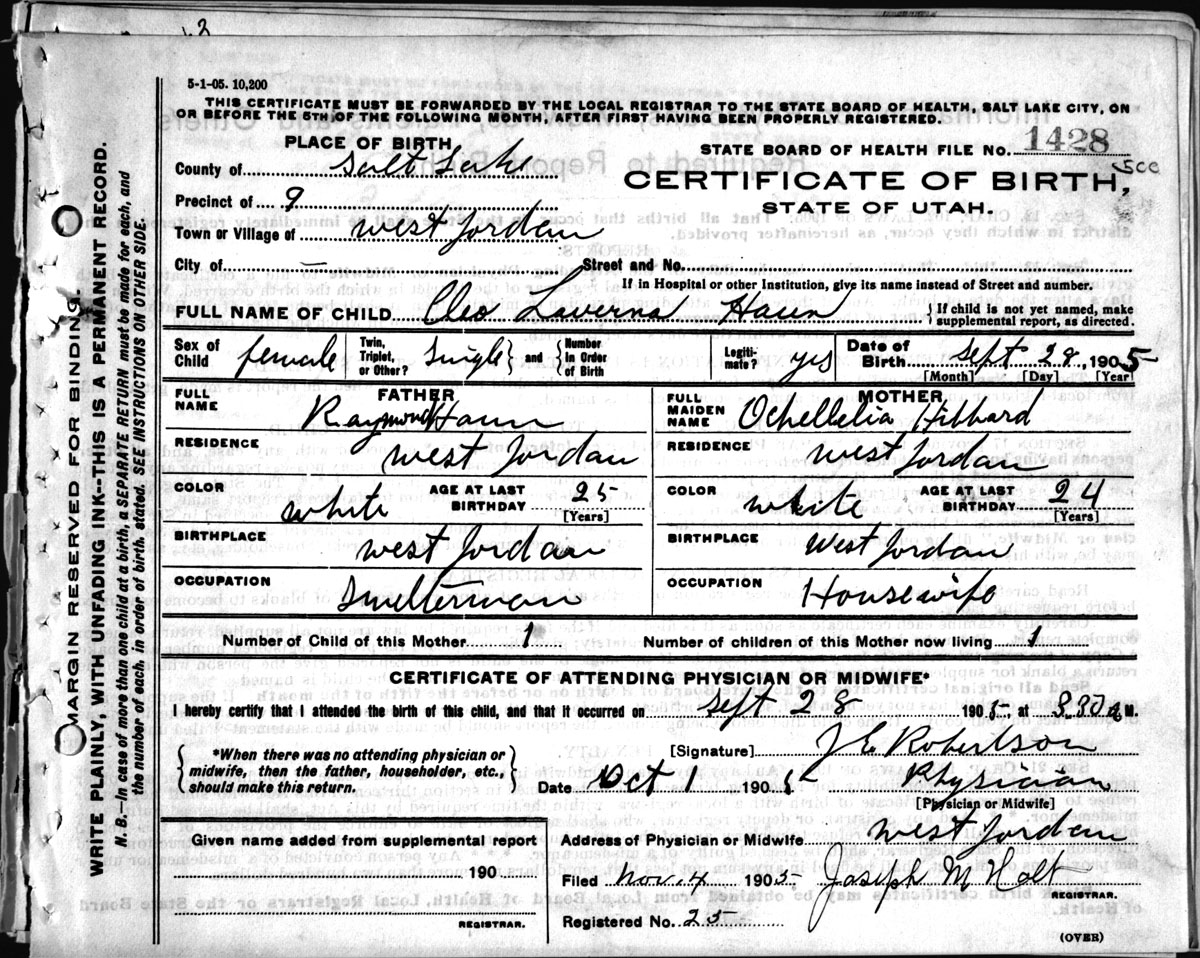 5-1-05. 10,200
THIS CERTIFICATE MUST BE FORWARDED BY THE LOCAL REGISTRAR TO THE STATE BOARD OF HEALTH, SALT LAKE CITY, ON
OR BEFORE THE 5TH OF THE FOLLOWING MONTH, AFTER FIRST HAVING BEEN PROPERLY REGISTERED.
PLACE OF BIRTH
STATE BOARD OF HEALTH FILE NO. 1428
County of Salt Lake
CERTIFICATE OF BIRTH,
STATE OF UTAH.
Precinct of 9
Town or Village of West Jordan
City of — Street and No.
If in Hospital or other Institution, give its name instead of Street and number.
FULL NAME OF CHILD Cleo Laverna Haun { If child is not yet named, make
supplemental report, as directed.
Sex of Child female Twin, Triplet, or Other? Single } and { Number in Order of Birth Legiti-mate? yes Date of Birth Sept 28, 1905
[Month] [Day] [Year]
FATHER
FULL NAME Raymond Haun
RESIDENCE West Jordan
COLOR white AGE AT LAST BIRTHDAY 25
[Years]
BIRTHPLACE West Jordan
OCCUPATION Smelterman
MOTHER
FULL MAIDEN NAME Ochellelia Hibbard
RESIDENCE West Jordan
COLOR white AGE AT LAST BIRTHDAY 24
[Years]
BIRTHPLACE West Jordan
OCCUPATION Housewife
Number of Child of this Mother 1 Number of children of this Mother now living 1
CERTIFICATE OF ATTENDING PHYSICIAN OR MIDWIFE*
I hereby certify that I attended the birth of this child, and that it occurred on Sept 28 1905 at 3.30 M.
{ *When there was no attending physician or
midwife, then the father, householder, etc.,
should make this return. }
[Signature] J E Robertson
Date Oct 1 190 Physician
[Physician or Midwife]
Address of Physician or Midwife West Jordan
Given name added from supplemental report
190
REGISTRAR.
Filed Nov. 4 1905 Joseph M Holt
REGISTRAR.
Registered No. 25
(OVER)
MARGIN RESERVED FOR BINDING.
WRITE PLAINLY, WITH UNFADING INK--THIS IS A PERMANENT RECORD.
N. B.—In case of more than one child at a birth, a SEPARATE RETURN must be made for each, and
the number of each, in order of birth, stated. SEE INSTRUCTIONS ON OTHER SIDE.